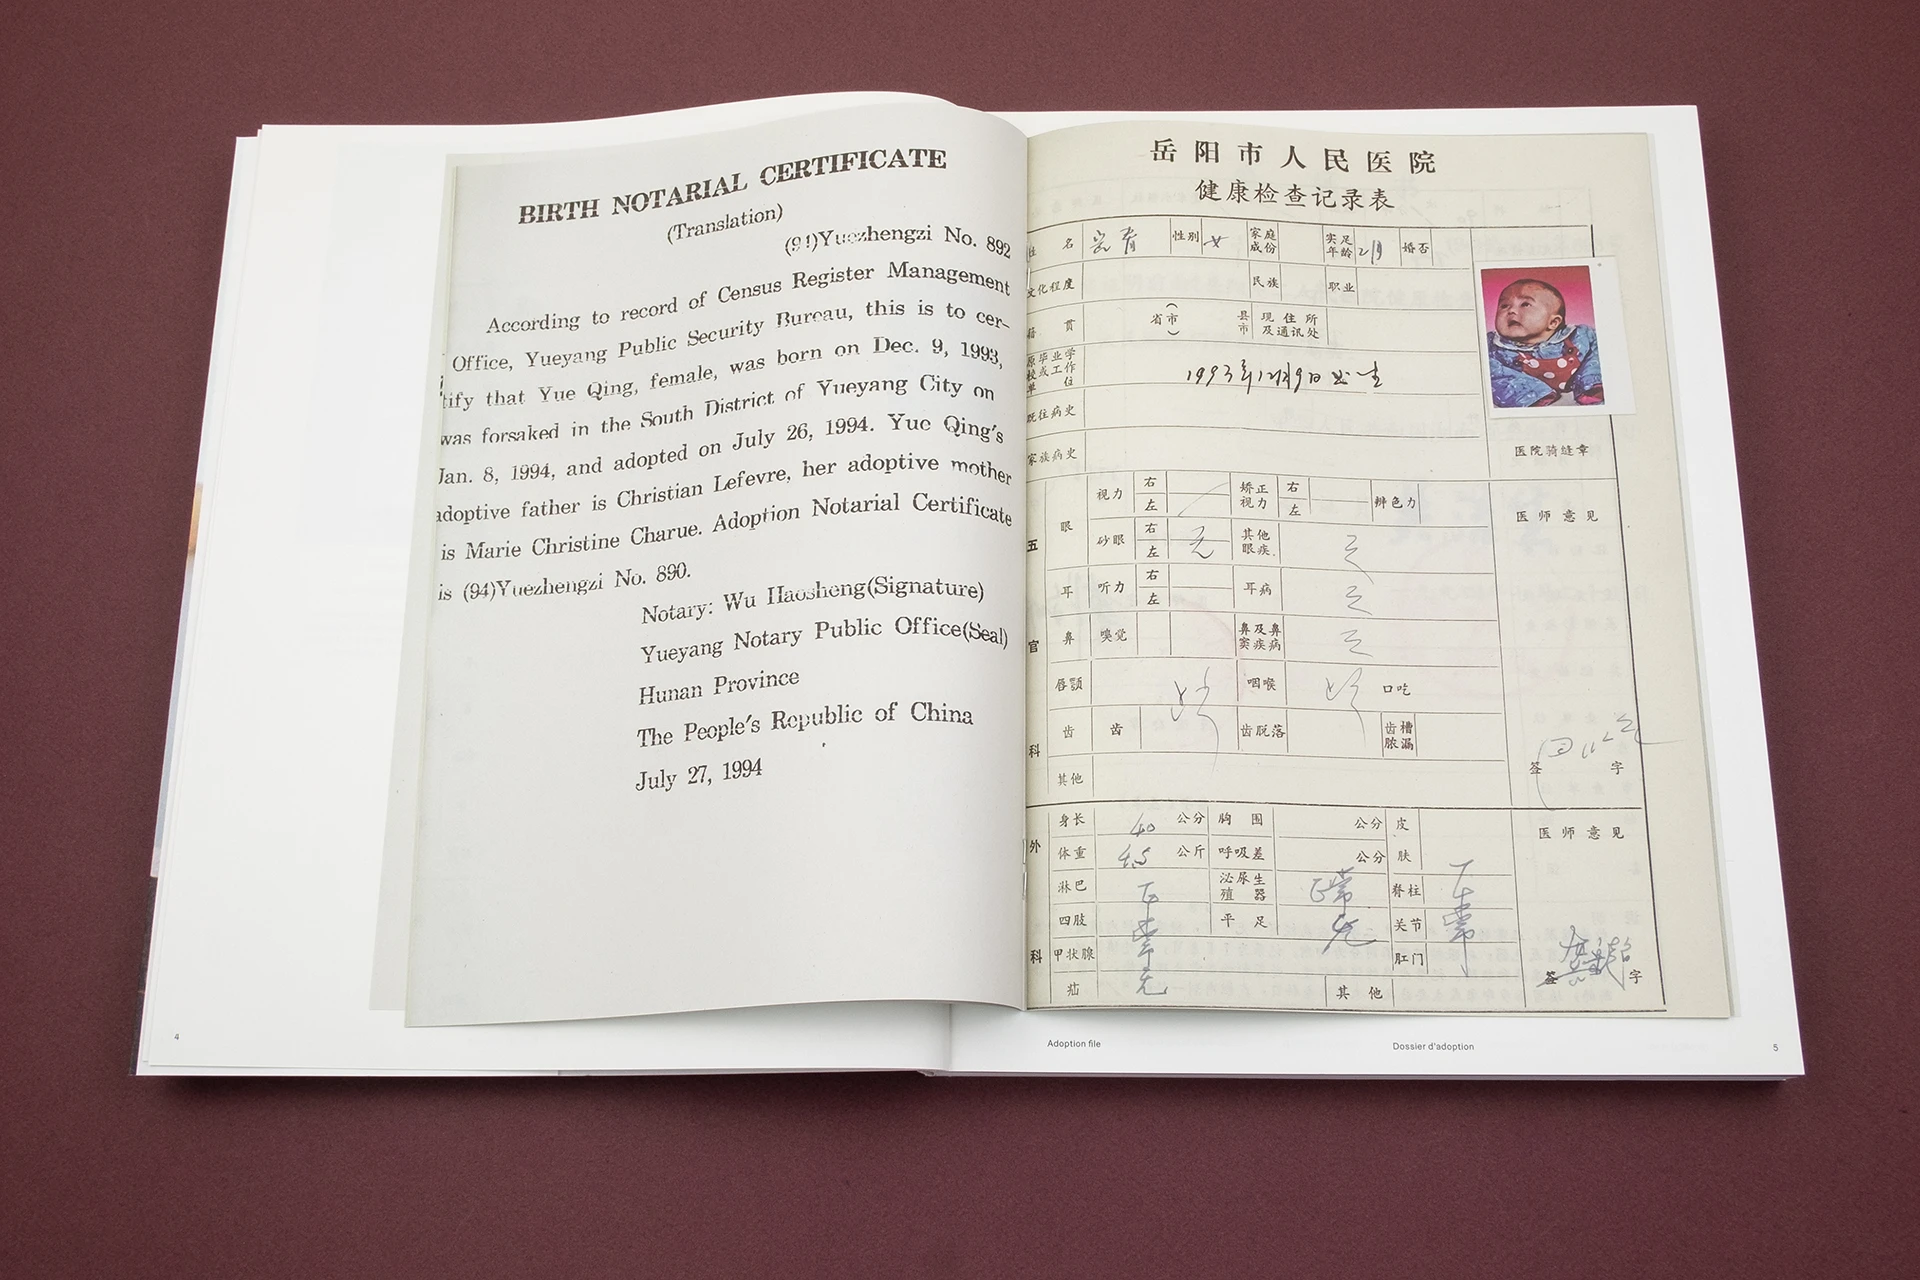 BIRTH NOTARIAL CERTIFICATE
(Translation)
(94)Yuezhengzi No. 892
According to record of Census Register Management
Office, Yueyang Public Security Bureau, this is to cer-
tify that Yue Qing, female, was born on Dec. 9, 1993,
was forsaked in the South District of Yueyang City on
Jan. 8, 1994, and adopted on July 26, 1994. Yue Qing's
adoptive father is Christian Lefevre, her adoptive mother
is Marie Christine Charue. Adoption Notarial Certificate
is (94)Yuezhengzi No. 890.
Notary: Wu Haosheng(Signature)
Yueyang Notary Public Office(Seal)
Hunan Province
The People's Republic of China
July 27, 1994
4
岳阳市人民医院
健康检查记录表
姓名 性别 女 家庭成份 实足年龄 2月 婚否
文化程度 民族 职业
籍贯 省(市) 县市 现住所及通讯处
原毕业学校或工作单位 1993年12月9日出生
既往病史
家族病史 医院骑缝章
五官科
眼 视力 右 左 矫正视力 右 左 辨色力 医师意见
砂眼 右 左 无 其他眼疾 无
耳 听力 右 左 耳病 无
鼻 嗅觉 鼻及鼻窦疾病 无
唇颚 咽喉 口吃
齿 齿 齿脱落 齿槽脓漏
签字
其他
外科
身长 40 公分 胸围 公分 皮肤 医师意见
体重 4.5 公斤 呼吸差 公分
淋巴 正常 泌尿生殖器 正常 脊柱 正常
四肢 平足 无 关节
甲状腺 肛门
签字
疝 无 其他
Adoption file
Dossier d'adoption
5